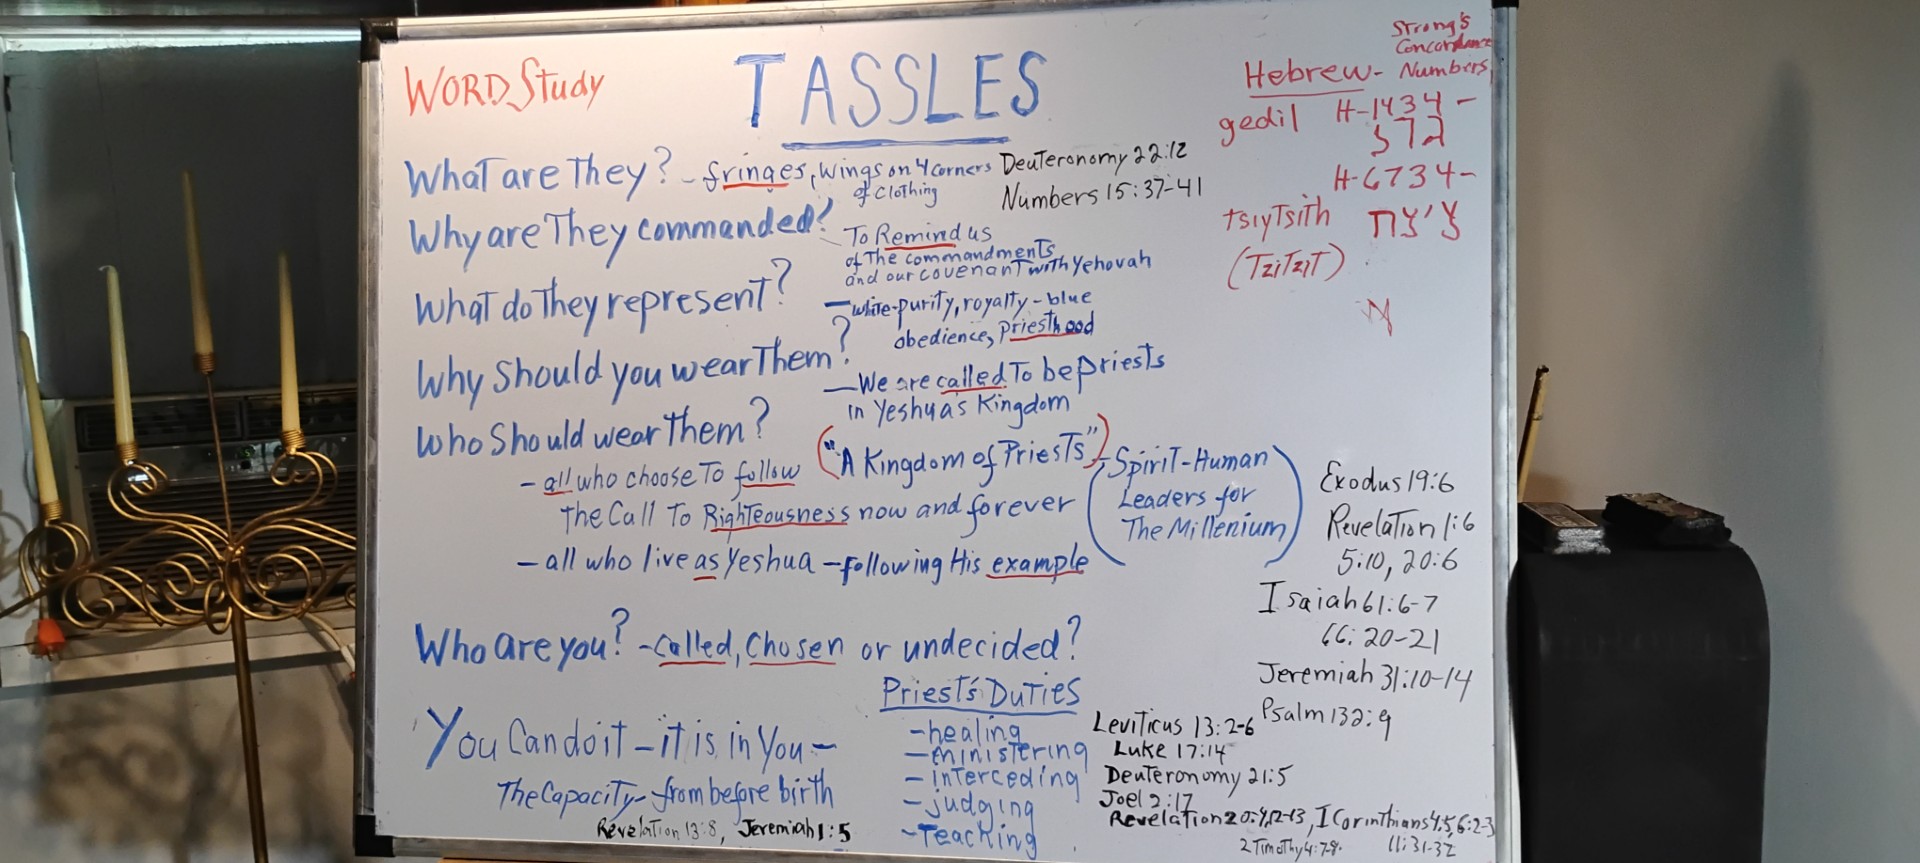 WORD Study
TASSLES
Strong's
Concordance
Hebrew - Numbers
gedil H-1434 -
H-6734 -
tsiytsith
(TziTziT)
What are They? - fringes, wings on 4 corners
of Clothing
Deuteronomy 22:12
Numbers 15:37-41
Why are They commanded?
To Remind us
of The commandments
and our covenant with Yehovah
What do They represent?
- white-purity, royalty-blue
obedience, priesthood
Why Should you wear Them?
- We are called To be priests
in Yeshua's Kingdom
Who Should wear Them?
("A Kingdom of Priests")
- all who choose To follow
the Call To Righteousness now and forever
- all who live as Yeshua - following His example
(Spirit-Human
Leaders for
The Millenium)
Exodus 19:6
Revelation 1:6
5:10, 20:6
Isaiah 61:6-7
66:20-21
Jeremiah 31:10-14
Psalm 132:9
Who are you? - called, Chosen or undecided?
You Can do it - it is in You -
The Capacity - from before birth
Revelation 13:8, Jeremiah 1:5
Priest's Duties
- healing
- ministering
- interceding
- judging
- Teaching
Leviticus 13:2-6
Luke 17:14
Deuteronomy 21:5
Joel 2:17
Revelation 20:4,12-13, I Corinthians 4:5, 6:2-3
2 Timothy 4:7-8 11:31-32